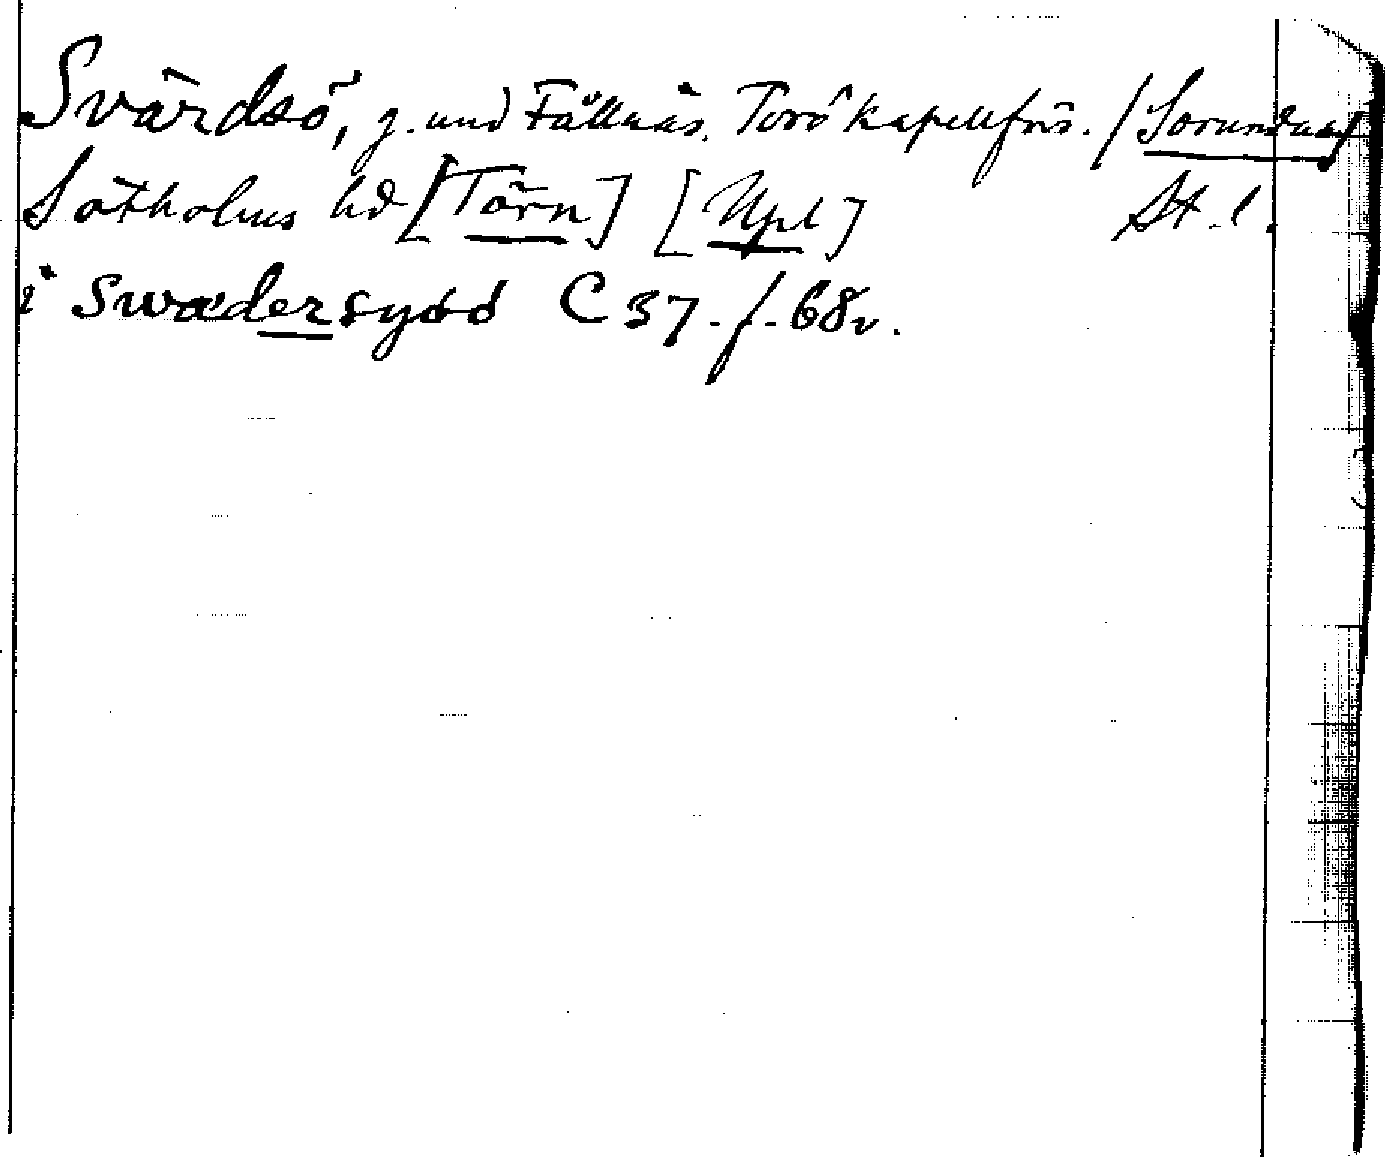 Svärdsö, g. und Fållnäs, Torö kapellförs. / Sorunda /
Sotholms hd [Törn] [Upl] St. l.
i swædersyöö C 37. f. 68v.